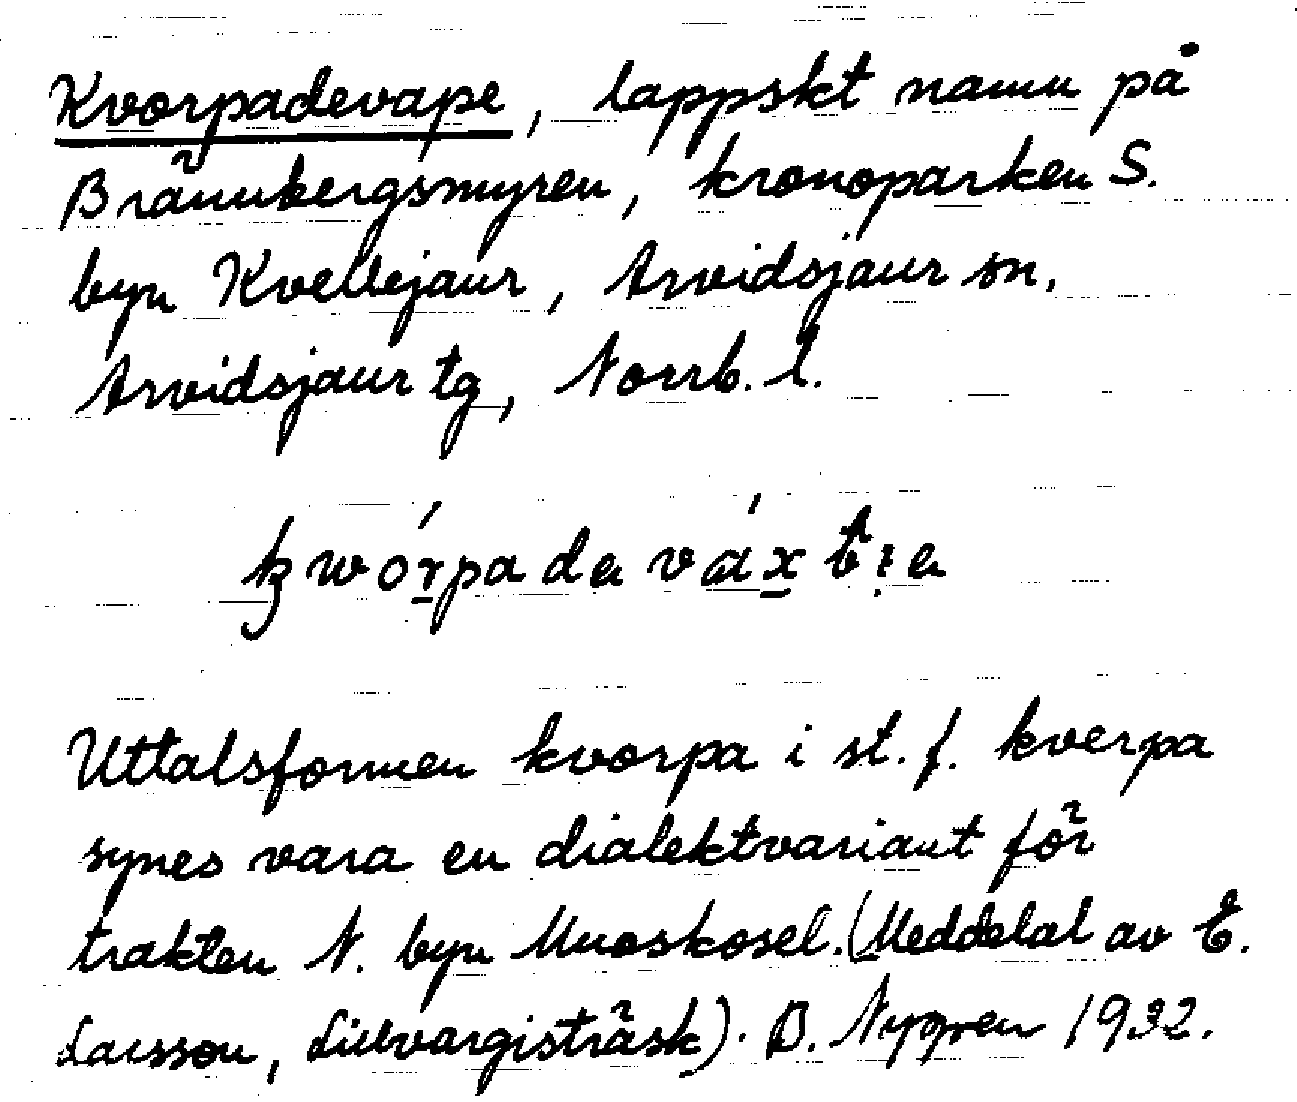 Kvorpadevape, lappskt namn på
Brännbergsmyren, kronoparken S.
byn Kvellejaur, Arvidsjaur sn,
Arvidsjaur tg, Norrb. l.
Uttalsformen kvorpa i st. f. kverpa
synes vara en dialektvariant för
trakten N. byn Muoskosel. (Meddelat av E.
Larsson, Lillvargisträsk). B. Nygren 1932.